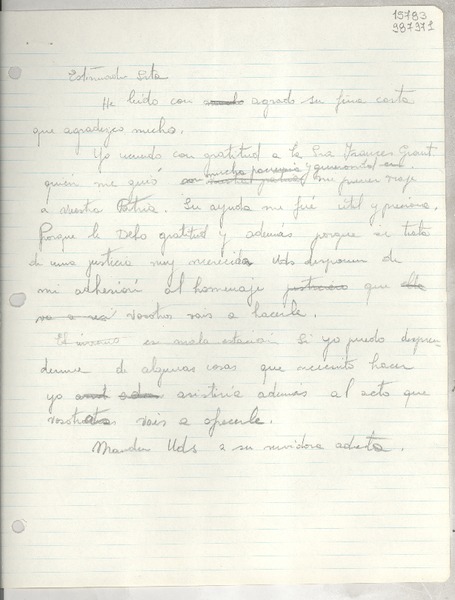 15783
987371
Estimada Srta
He leido con agrado su fina carta
que agradezco mucho.
Yo recuerdo con gratitud a la Sra Frances Grant
mucha paciencia y generosidad en
quien me guió mi primer viaje
a vuestra Patria. Su ayuda me fué útil y preciosa.
Porque le Debo gratitud y además porque se trata
de una justicia muy merecida Uds disponen de
mi adhesión al homenaje justiciero que
vosotros vais a hacerle.
El invierno es mala estación Si yo puedo despren-
derme de algunas cosas que necesito hacer
yo asistiría además al acto que
vosotras vais a ofrecerle.
Manden Uds a su servidora adicta.